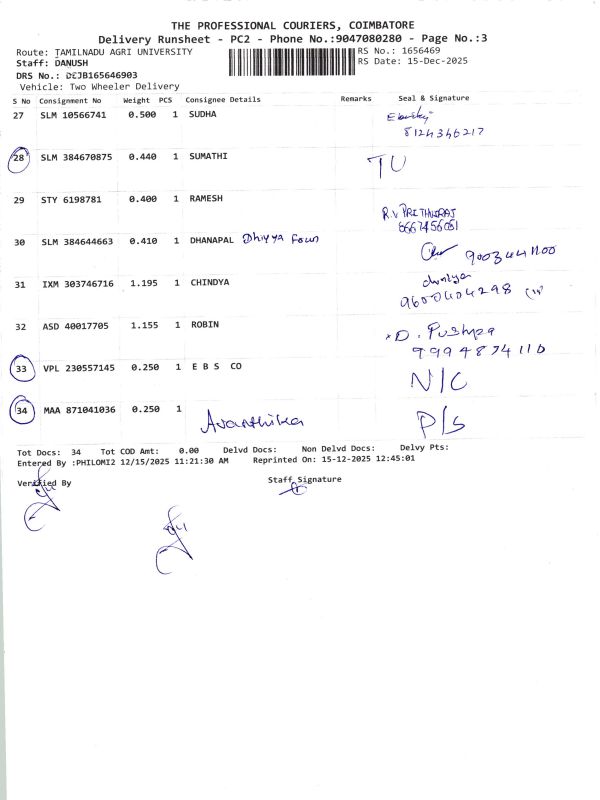 THE PROFESSIONAL COURIERS, COIMBATORE
Delivery Runsheet - PC2 - Phone No.:9047080280 - Page No.:3
Route: TAMILNADU AGRI UNIVERSITY RS No.: 1656469
Staff: DANUSH RS Date: 15-Dec-2025
DRS No.: DEJB165646903
Vehicle: Two Wheeler Delivery
S No Consignment No Weight PCS Consignee Details Remarks Seal & Signature
27 SLM 10566741 0.500 1 SUDHA
8124346217
28 SLM 384670875 0.440 1 SUMATHI TU
29 STY 6198781 0.400 1 RAMESH
R.V PRITHVIRAJ
30 SLM 384644663 0.410 1 DHANAPAL Dhiyya
31 IXM 303746716 1.195 1 CHINDYA
9600404298
32 ASD 40017705 1.155 1 ROBIN
D. Pushpa
9994874110
33 VPL 230557145 0.250 1 E B S CO N/C
34 MAA 871041036 0.250 1 Avanthika P/S
Tot Docs: 34 Tot COD Amt: 0.00 Delvd Docs: Non Delvd Docs: Delvy Pts:
Entered By :PHILOMI2 12/15/2025 11:21:30 AM Reprinted On: 15-12-2025 12:45:01
Verified By Staff Signature